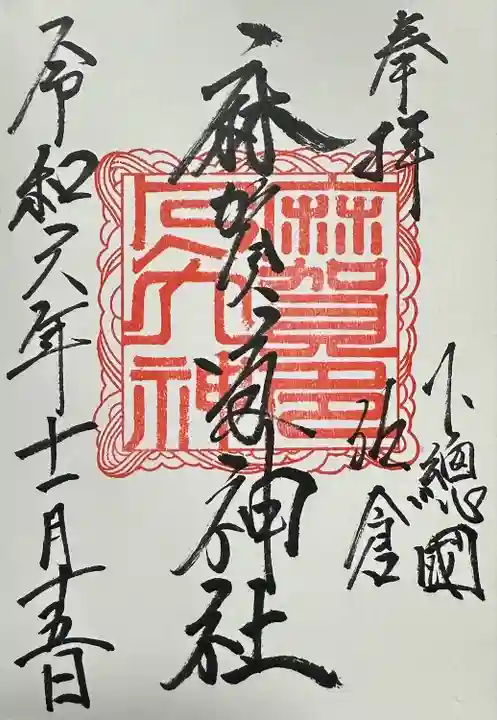 奉拝
下總國
佐倉
麻賀多神社
令和六年十一月十五日